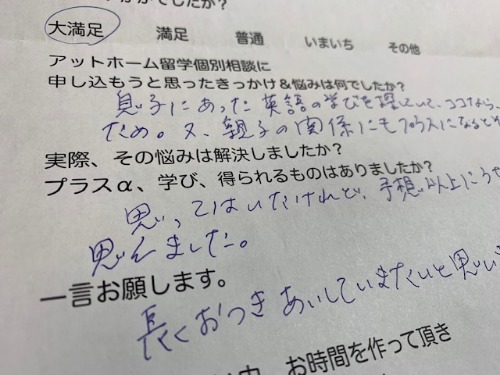 でしたか?
大満足 満足 普通 いまいち その他
アットホーム留学個別相談に
申し込もうと思ったきっかけ&悩みは何でしたか?
息子にあった英語の学びを探していて、ココなら
ため。又、親子の関係にもプラスになると
実際、その悩みは解決しましたか?
プラスα、学び、得られるものはありましたか?
思ってはいたけれど、予想以上にうち
思えました。
一言お願します。
長くおつきあいしていきたいと思い
お時間を作って頂き